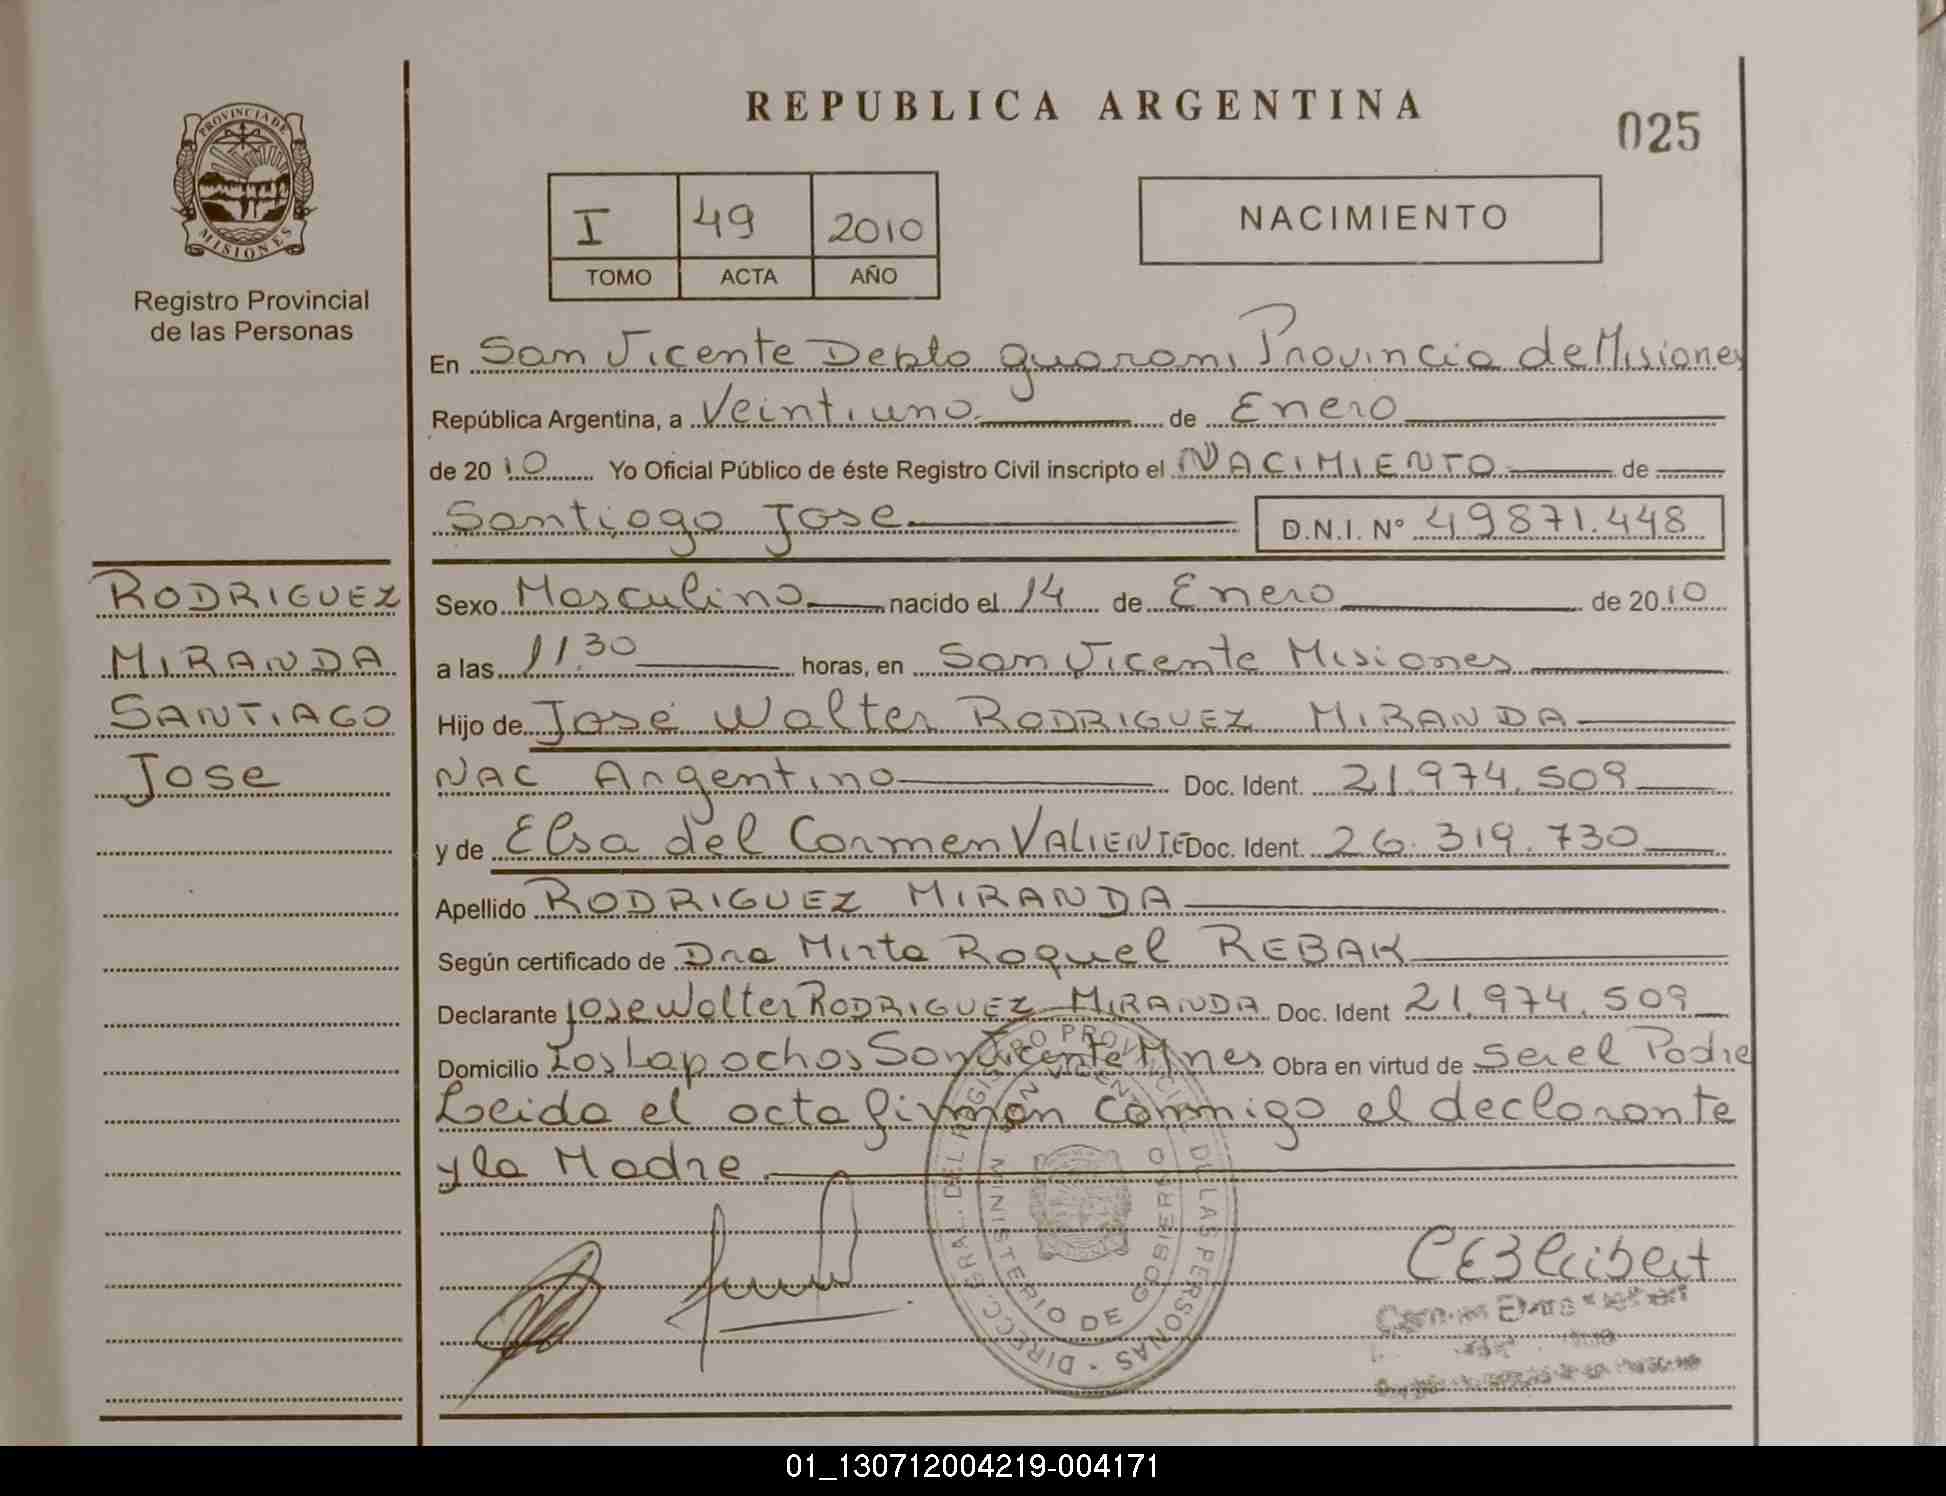 REPUBLICA ARGENTINA
025
PROVINCIA DE MISIONES
Registro Provincial
de las Personas
I 49 2010
TOMO ACTA AÑO
NACIMIENTO
En San Vicente Depto guarani Provincia de Misiones
República Argentina, a Veintiuno de Enero
de 20 10 Yo Oficial Público de éste Registro Civil inscripto el NACIMIENTO de
Santiago Jose D.N.I. N° 49871.448
RODRIGUEZ
MIRANDA
SANTIAGO
Jose
Sexo Masculino nacido el 14 de Enero de 20 10
a las 11.30 horas, en San Vicente Misiones
Hijo de José Walter RODRIGUEZ MIRANDA
NAC Argentino Doc. Ident. 21.974.509
y de Elsa del Carmen VALIENTE Doc. Ident. 26.319.730
Apellido RODRIGUEZ MIRANDA
Según certificado de Dra Mirta Raquel REBAK
Declarante Jose Walter RODRIGUEZ MIRANDA Doc. Ident 21.974.509
Domicilio Los Lapachos San Vicente Mnes Obra en virtud de Ser el Padre
Leida el acta firman conmigo el declarante
y la Madre.
DIRECC. GRAL. DEL REGISTRO PROVINCIAL DE LAS PERSONAS
SAN VICENTE
MINISTERIO DE GOBIERNO
01_130712004219-004171